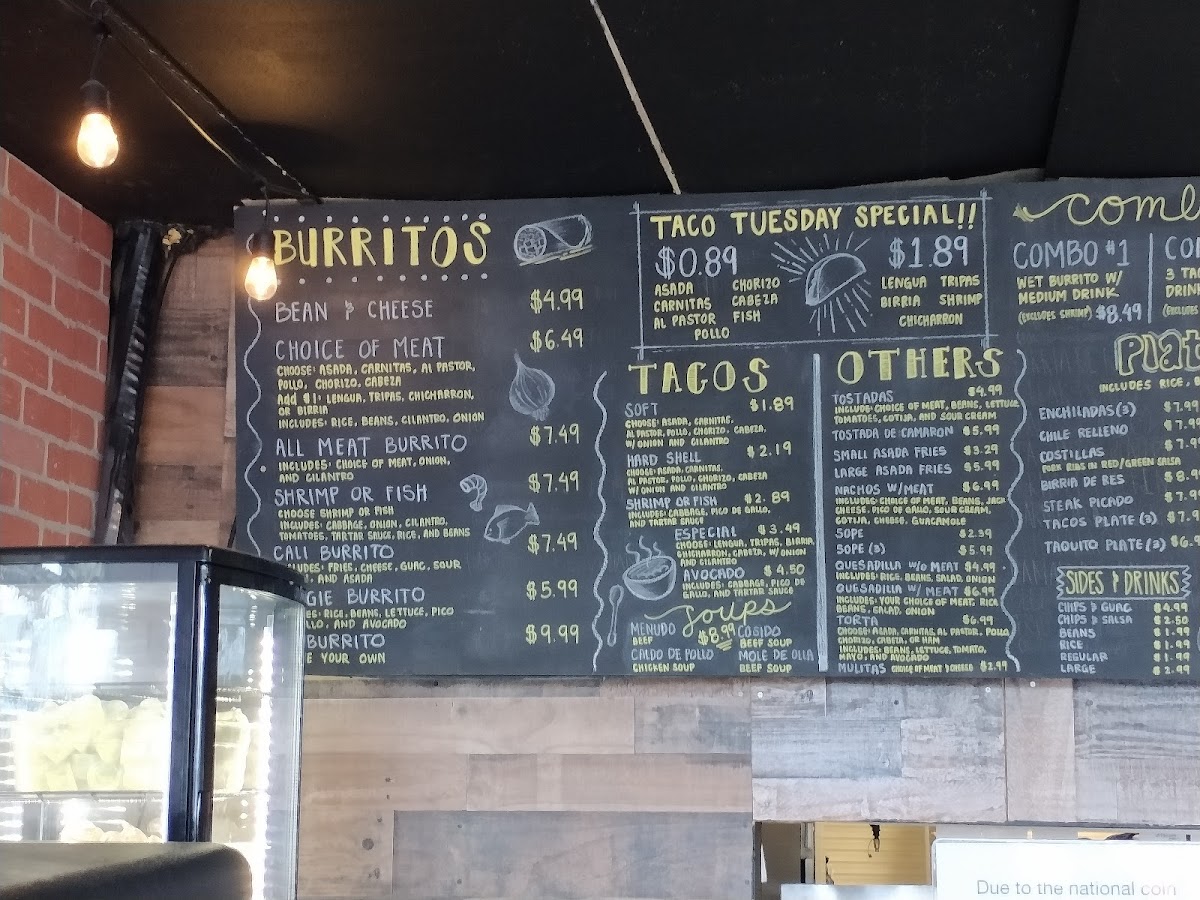 BURRITOS
BEAN & CHEESE $4.99
CHOICE OF MEAT $6.49
CHOOSE: ASADA, CARNITAS, AL PASTOR,
POLLO, CHORIZO, CABEZA
Add $1: LENGUA, TRIPAS, CHICHARRON,
OR BIRRIA
INCLUDES: RICE, BEANS, CILANTRO, ONION
ALL MEAT BURRITO $7.49
INCLUDES: CHOICE OF MEAT, ONION,
AND CILANTRO
SHRIMP OR FISH $7.49
CHOOSE SHRIMP OR FISH
INCLUDES: CABBAGE, ONION, CILANTRO,
TOMATOES, TARTAR SAUCE, RICE, AND BEANS
CALI BURRITO $7.49
FRIES, CHEESE, GUAC, SOUR
AND ASADA
BURRITO $5.99
RICE, BEANS, LETTUCE, PICO
AND AVOCADO
BURRITO $9.99
YOUR OWN
TACO TUESDAY SPECIAL!!
$0.89
ASADA CHORIZO
CARNITAS CABEZA
AL PASTOR FISH
POLLO
$1.89
LENGUA TRIPAS
BIRRIA SHRIMP
CHICHARRON
TACOS
SOFT $1.89
CHOOSE: ASADA, CARNITAS,
AL PASTOR, POLLO, CHORIZO, CABEZA,
W/ ONION AND CILANTRO
HARD SHELL $2.19
CHOOSE: ASADA, CARNITAS,
AL PASTOR, POLLO, CHORIZO, CABEZA
W/ ONION AND CILANTRO
SHRIMP OR FISH $2.89
INCLUDES: CABBAGE, PICO DE GALLO,
AND TARTAR SAUCE
ESPECIAL $3.49
CHOOSE: LENGUA, TRIPAS, BIRRIA
CHICHARRON, CABEZA, W/ ONION
AND CILANTRO
AVOCADO $4.50
INCLUDES: CABBAGE, PICO DE
GALLO, AND TARTAR SAUCE
Soups
$8.99
MENUDO COSIDO
BEEF BEEF SOUP
CALDO DE POLLO MOLE DE OLLA
CHICKEN SOUP BEEF SOUP
OTHERS
TOSTADAS $4.99
INCLUDE: CHOICE OF MEAT, BEANS, LETTUCE
TOMATOES, COTIJA, AND SOUR CREAM
TOSTADA DE CAMARON $5.99
SMALL ASADA FRIES $3.29
LARGE ASADA FRIES $5.99
NACHOS W/MEAT $6.99
INCLUDES: CHOICE OF MEAT, BEANS, JACK
CHEESE, PICO DE GALLO, SOUR CREAM,
COTIJA, CHEESE, GUACAMOLE
SOPE $2.99
SOPE (3) $5.99
QUESADILLA W/O MEAT $4.99
INCLUDES: RICE, BEANS, SALAD, ONION
QUESADILLA W/ MEAT $6.99
INCLUDES: YOUR CHOICE OF MEAT, RICE
BEANS, SALAD, ONION
TORTA $6.99
CHOOSE: ASADA, CARNITAS, AL PASTOR, POLLO,
CHORIZO, CABEZA, OR HAM
INCLUDES: BEANS, LETTUCE, TOMATO,
MAYO, AND AVOCADO
MULITAS CHOICE OF MEAT & CHEESE $2.99
COMBO #1
WET BURRITO W/
MEDIUM DRINK
(EXCLUDES SHRIMP) $8.49
3
INCLUDES RICE,
ENCHILADAS (3)
CHILE RELLENO
COSTILLAS
PORK RIBS IN RED/GREEN SALSA
BIRRIA DE RES
STEAK PICADO
TACOS PLATE (3)
TAQUITO PLATE (3)
SIDES & DRINKS
CHIPS & GUAC $4.99
CHIPS & SALSA $2.50
BEANS $1.99
RICE $1.99
REGULAR $1.99
LARGE $2.99
Due to the national coin